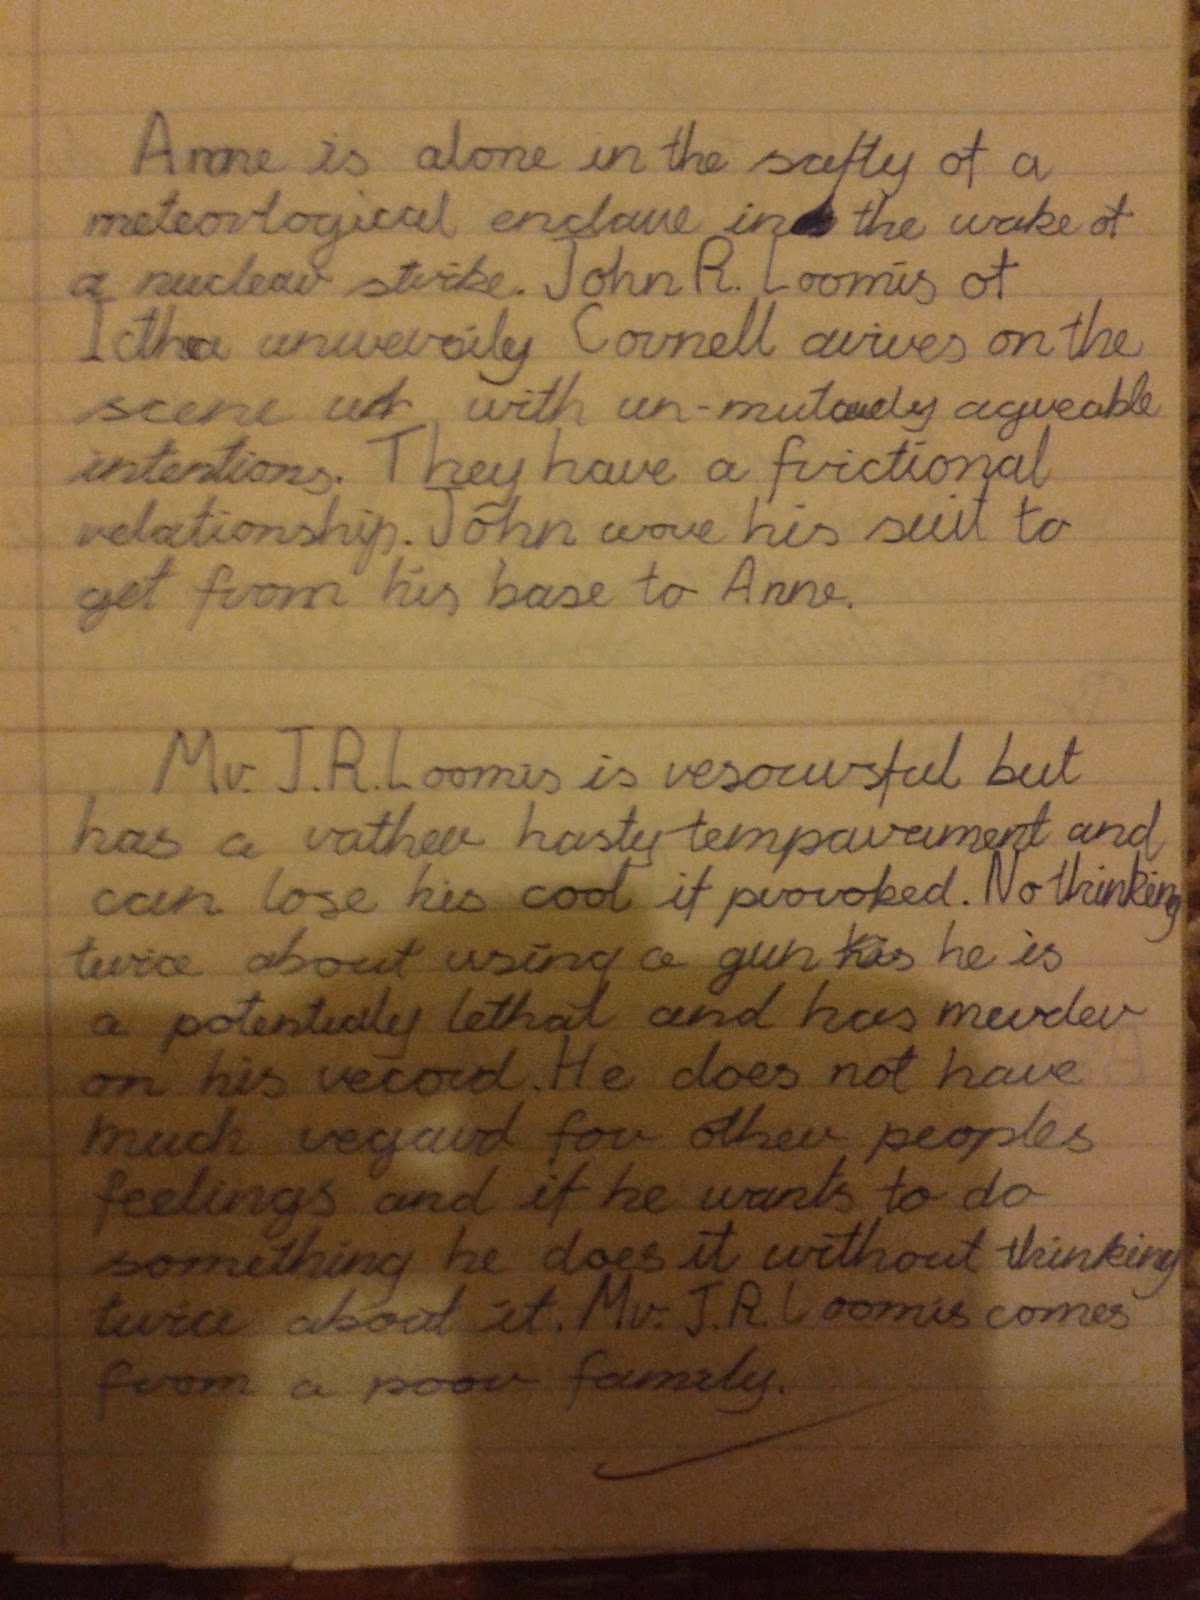 Anne is alone in the safty of a
meteorlogical enclave in the wake of
a nuclear strike. John R. Loomis of
Ictha unwersily Cornell arives on the
scene with un-mutualy agreable
intentions. They have a frictional
relationship. John wore his suit to
get from his base to Anne.
Mr. J.R. Loomis is resoursful but
has a rather hasty temparament and
can lose his cool if provoked. No thinking
twice about using a gun he is
a potentialy lethal and has murder
on his record. He does not have
much regard for other peoples
feelings and if he wants to do
something he does it without thinking
twice about it. Mr. J.R. Loomis comes
from a poor family.